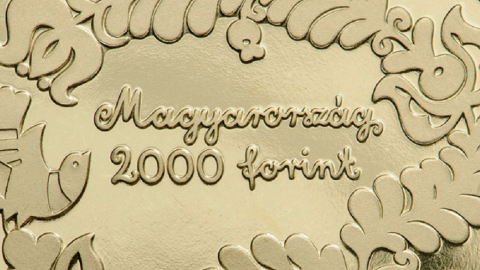 Magyarország
2000 forint